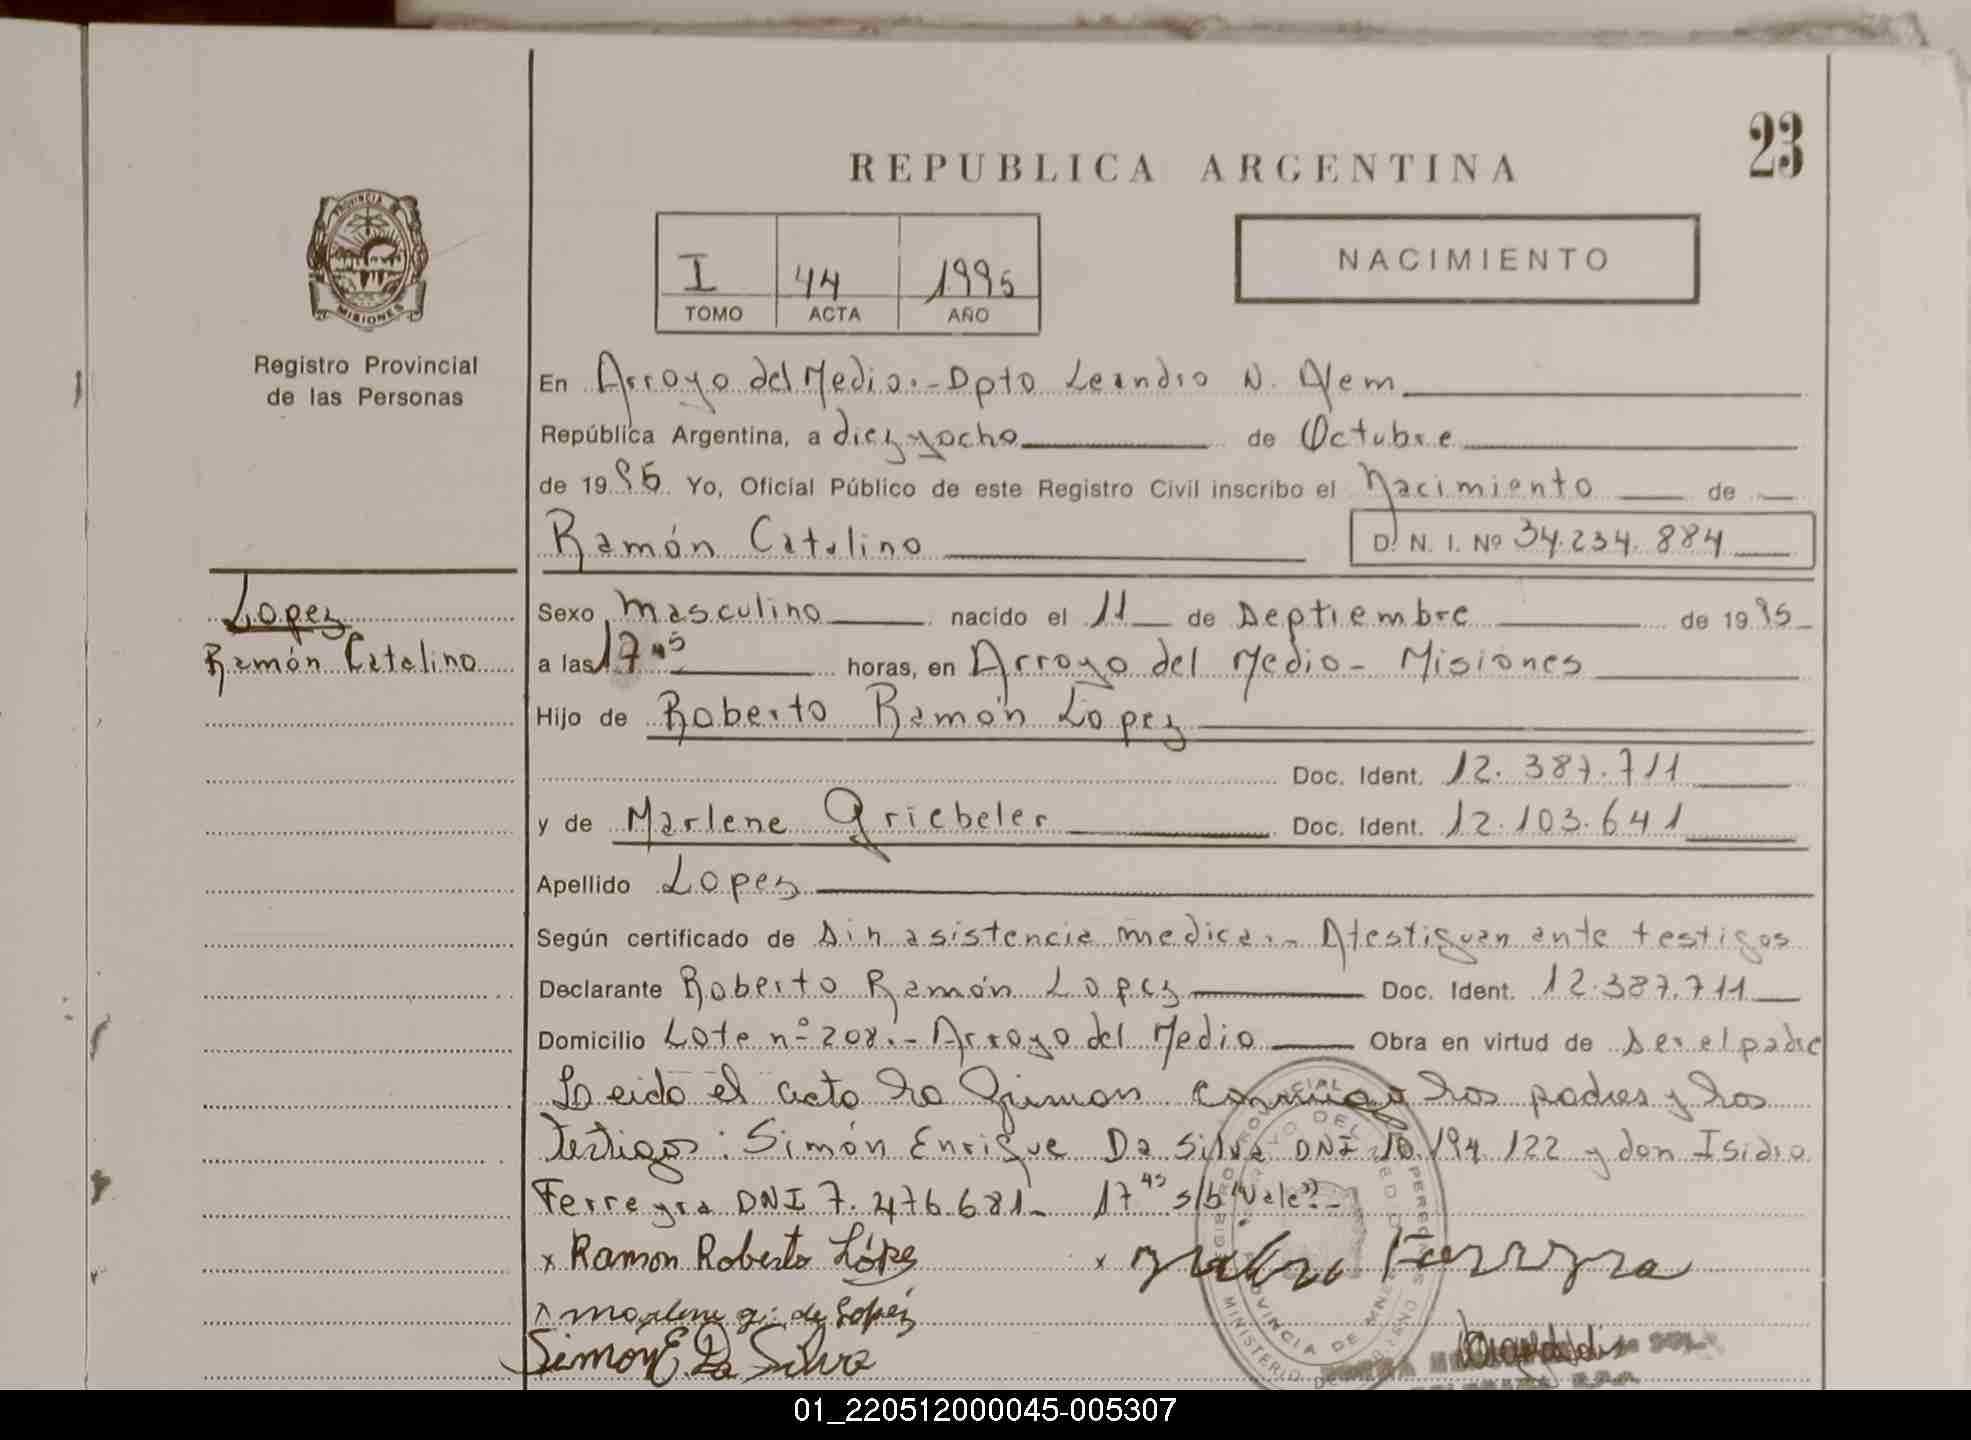 23
REPUBLICA ARGENTINA
PROVINCIA DE MISIONES
Registro Provincial
de las Personas
I 44 1995
TOMO ACTA AÑO
NACIMIENTO
En Arroyo del Medio.- Dpto Leandro N. Alem
República Argentina, a diez y ocho de Octubre
de 1995 Yo, Oficial Público de este Registro Civil inscribo el Nacimiento de
Ramón Catalino D. N. I. Nº 34.234.884
Lopez
Ramón Catalino
Sexo Masculino nacido el 11 de Septiembre de 1995
a las 17 45 horas, en Arroyo del Medio - Misiones
Hijo de Roberto Ramón Lopez
Doc. Ident. 12.387.711
y de Marlene Griebeler Doc. Ident. 12.103.641
Apellido Lopez
Según certificado de Sin asistencia medica.- Atestiguan ante testigos
Declarante Roberto Ramón Lopez Doc. Ident. 12.387.711
Domicilio Lote nº 208.- Arroyo del Medio Obra en virtud de ser el padre
Leido el acto lo firman conmigo los padres y los
testigos: Simón Enrique Da Silva DNI 10.194.122 y don Isidro
Ferreyra DNI 7.476.681- 17 45 s/b "Vale".-
x Ramon Roberto López x Ferreyra
Marlene G. de Lopez
Simon E. Da Silva
01_220512000045-005307